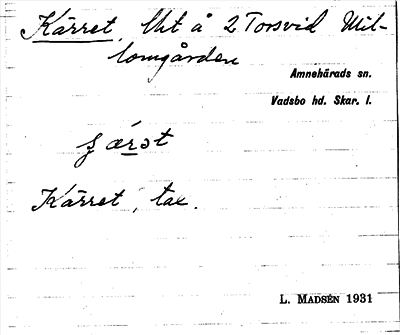 Kärret, Uht å 2 Torsvid Mil-
lomgården
Amnehärads sn.
Vadsbo hd. Skar. l.
ʃ ærət
Kärret, tax.
L. MADSÉN 1931